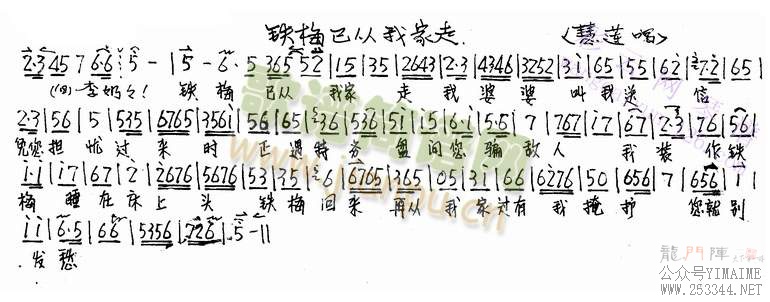 铁梅已从我家走 (慧莲唱)
2·3 45 7 6·6 5 - | 5 - 6· 5 365 52 | 15 | 35 | 2643 | 2·3 | 4346 | 3252 | 3i | 65 | 55 | 62 | 7·2 | 65 |
(白)李奶奶! 铁梅 已从 我家 走 我婆婆 叫我送信
2·3 | 56 | 5 | 535 | 6765 | 356i | 56 | 65 | 36 | 536 | 5i | i5 | 6·i | 5·5 | 7 | 767 | i7 | 67 | 2·3 | 76 | 56 |
免您担忧过来时 正遇特务盘问您骗敌人 我装作铁
i·i | i7 | 67 | 2· | 2676 | 5676 | 53 | 35 | 6 | 6765 | 365 | 05 | 3i | 66 | 6276 | 50 | 656 | 7 | 656 | i |
梅睡在床上头 铁梅回来再从我家过有我掩护 您就别
ii | 6·5 | 66 | 5356 | 726 | 5 - ||
发愁
龍門陣
公众号YIMAIME
www.253344.NET